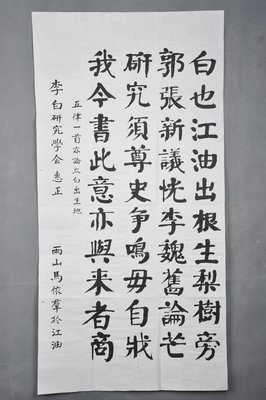 白也江油出根生梨樹旁
郭張新議恍李魏舊論芒
研究須尊史争鳴毋自戕
我今書此意亦與来者商
五律一首亦論太白出生地
李白研究學會惠正
兩山馬依羣於江油